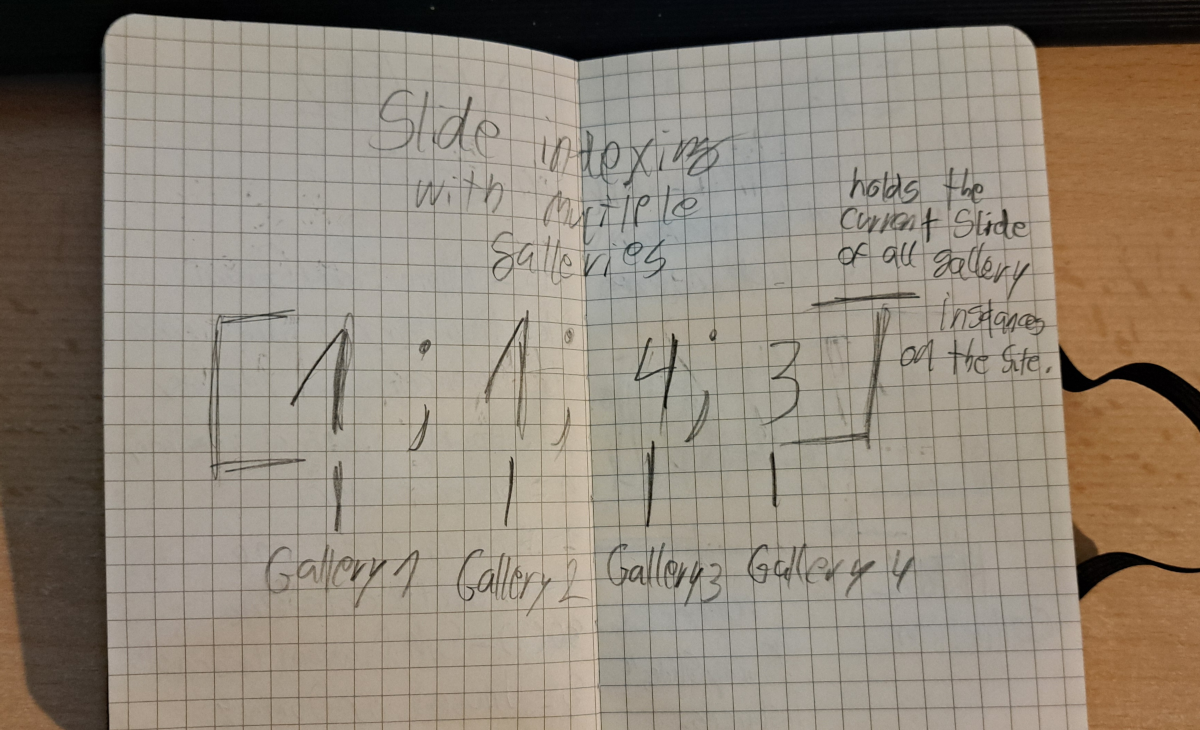 Slide indexing
with multiple
galleries
holds the
current Slide
of all gallery
instances
on the Site.
[1; 1; 4; 3]
Gallery 1 Gallery 2 Gallery 3 Gallery 4